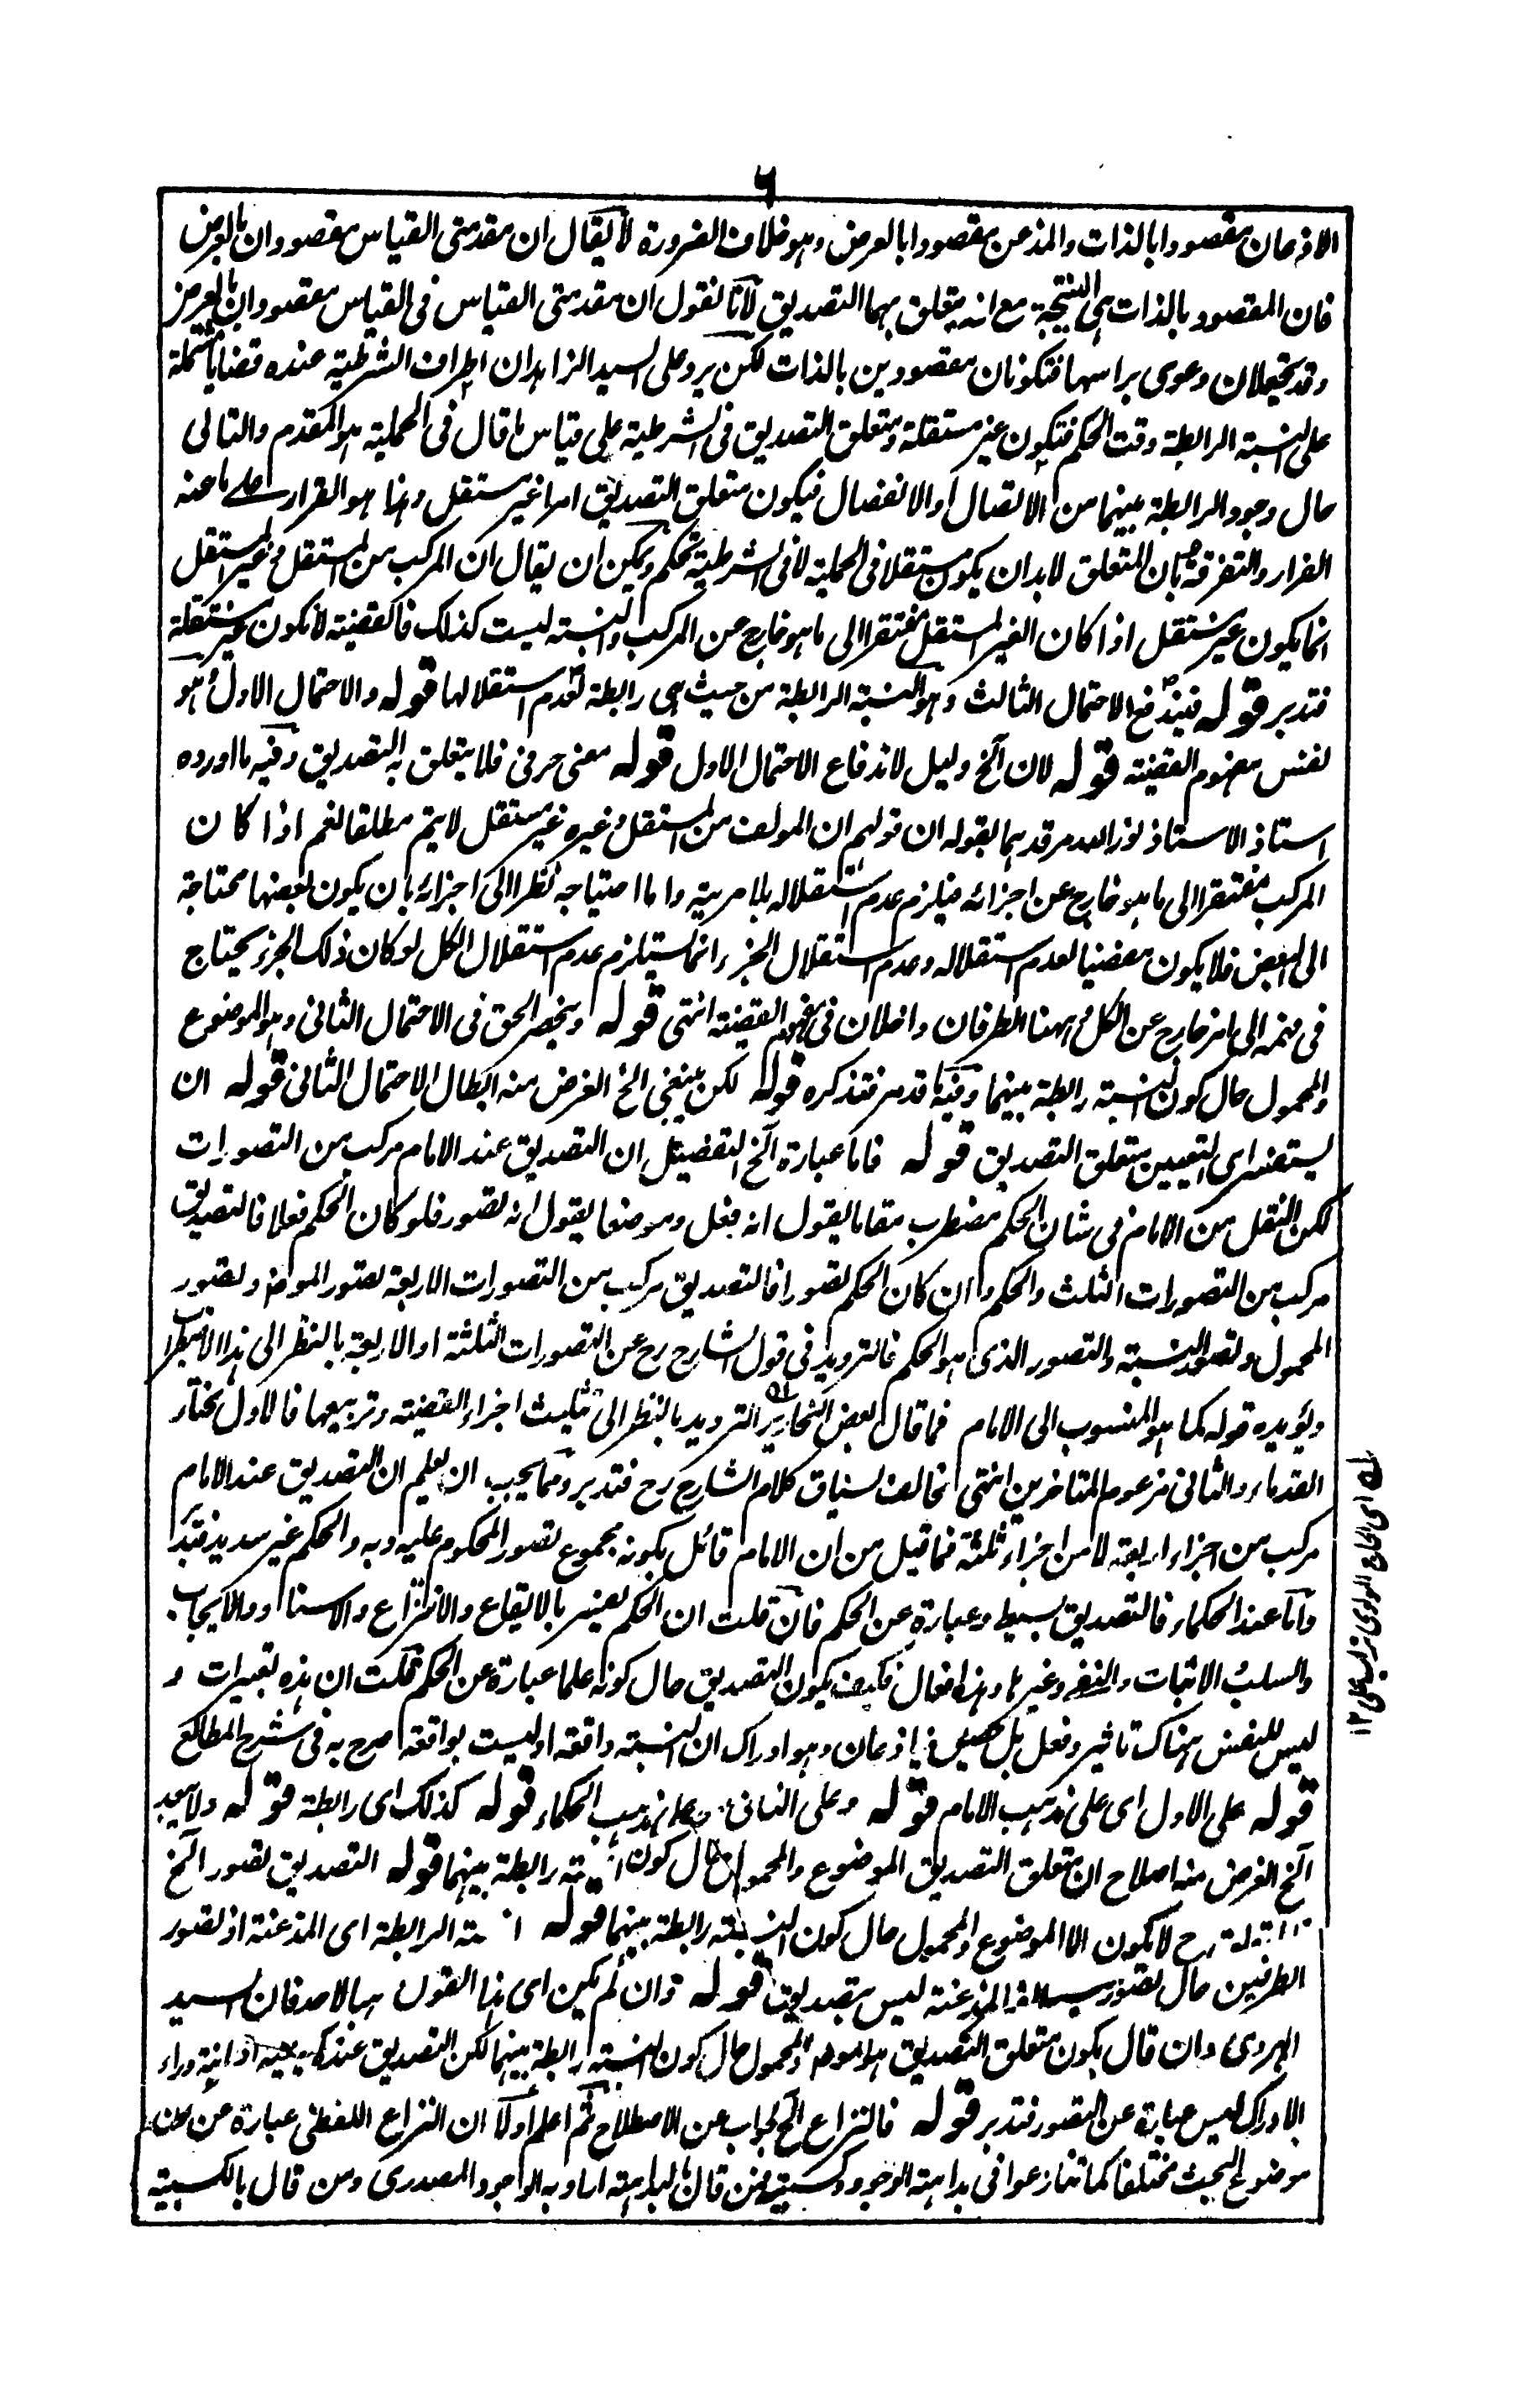 ٦
الاذعان مقصودا بالذات والمذعن مقصودا بالعرض وهو خلاف الضرورة لا يقال ان مقدمتى القياس مقصودان بالعرض
فان المقصود بالذات هى النتيجة مع انه يتعلق بهما التصديق لانا نقول ان مقدمتى القياس فى القياس مقصودان بالعرض
وقد تجعلان دعوى براسها فتكونان مقصودين بالذات لكن يرد على السيد الزاهد ان اطراف الشرطية عنده قضايا مشتملة
على النسبة الرابطة وقت الحكم فتكون غير مستقلة ومتعلق التصديق فى الشرطية على قياس ما قال فى الحملية هو المقدم والتالى
حال وجود الرابطة بينهما من الاتصال او الانفصال فيكون متعلق التصديق امرا غير مستقل وهذا هو القرار على ما عنه
الفرار والتفرقة بان المتعلق لا بد ان يكون مستقلا فى الحملية لا فى الشرطية تحكم ويمكن ان يقال ان المركب من المستقل وغير المستقل
انما يكون غير مستقل اذا كان الغير المستقل مفتقرا الى ما هو خارج عن المركب والنسبة ليست كذلك فالقضية لا تكون غير مستقلة
فتدبر قوله فيندفع الاحتمال الثالث وهو النسبة الرابطة من حيث هى رابطة لعدم استقلالها قوله والاحتمال الاول هو
نفس مفهوم القضية قوله لان آلخ دليل لاندفاع الاحتمال الاول قوله معنى حرفى فلا يتعلق به التصديق وفيه ما اورده
استاذ الاستاذ نور الله مرقدهما بقوله ان قولهم ان المولف من المستقل وغيره غير مستقل لا يتم مطلقا نعم اذا كان
المركب مفتقرا الى ما هو خارج عن اجزائه فيلزم عدم استقلاله بلا مرية واما احتياجه نظرا الى اجزائه بان يكون بعضها محتاجة
الى البعض فلا يكون مفضيا لعدم استقلاله وعدم استقلال الجزء انما يستلزم عدم استقلال الكل لو كان ذلك الجزء يحتاج
فى فهمه الى امر خارج عن الكل وههنا الطرفان داخلان فى مفهوم القضية انتهى قوله وينحصر الحق فى الاحتمال الثانى وهو الموضوع
والمحمول حال كون النسبة رابطة بينهما وفيه ما قد مر فتذكره قوله لكن ينبغى الخ الغرض منه ابطال الاحتمال الثانى قوله ان
يستفسر اى التعيين متعلق التصديق قوله فاما عبارة آلخ التفصيل ان التصديق عند الامام مركب من التصورات
لكن النقل من الامام فى شان الحكم مضطرب مقاما يقول انه فعل وموضعا يقول انه تصور فلو كان الحكم فعلا فالتصديق
مركب من التصورات الثلث والحكم وان كان الحكم تصورا فالتصديق مركب من التصورات الاربعة تصور الموضوع وتصور
المحمول وتصور النسبة والتصور الذى هو الحكم فالترديد فى قول الشارح رح عن التصورات الثلثة او الاربعة بالنظر الى هذا الاضطراب
ويؤيده قوله كما هو المنسوب الى الامام فما قال بعض النحارير له الترديد بالنظر الى تثليث اجزاء القضية وتربيعها فالاول مختار
القدماء والثانى مزعوم المتاخرين انتهى تخالف لسياق كلام الشارح رح فتدبر ومما يجب ان يعلم ان التصديق عند الامام
مركب من اجزاء اربعة لا من اجزاء ثلثة فما قيل من ان الامام قائل بكونه مجموع تصور المحكوم عليه وبه والحكم غير سديد فتدبر
واما عند الحكماء فالتصديق بسيط وعبارة عن الحكم فان قلت ان الحكم يفسر بالايقاع والانتزاع والاسناد والايجاب
والسلب والاثبات والنفى وغيرها وهذه افعال فكيف يكون التصديق حال كونه علما عبارة عن الحكم قلت ان هذه تعبيرات و
ليس للنفس هناك تاثير وفعل بل اذعان وهو ادراك ان النسبة واقعة او ليست بواقعة صرح به فى شرح المطالع
قوله على الاول اى على مذهب الامام قوله وعلى الثانى على مذهب الحكماء قوله كذلك اى رابطة قوله ولا يبعد
آلخ الغرض منه اصلاح ان متعلق التصديق الموضوع والمحمول حال كون رابطة بينهما قوله التصديق تصور آلخ
رح لا يكون الا الموضوع والمحمول حال كون النسبة رابطة بينهما قوله الرابطة اى المذعنة اذ تصور
الطرفين حال تصور المذعنة ليس بتصديق قوله وان لم يكن اى هذا القول فان السيد
الهروى وان قال بكون متعلق التصديق هو الموضوع والمحمول حال كون النسبة رابطة بينهما لكن التصديق عنده كيفية اذعانية وراء
الادراك ليس عبارة عن التصور فتدبر قوله فالنزاع آلخ جواب عن الاصطلاح ثم اعلم اولا ان النزاع اللفظى عبارة عن كون
موضوع البحث مختلفا كما تنازعوا فى بداهة الوجود وكسبيته فمن قال بالبداهة اراد به الوجود المصدرى ومن قال بالكسبية
له اى الحاج المولوى تراب على ١٢